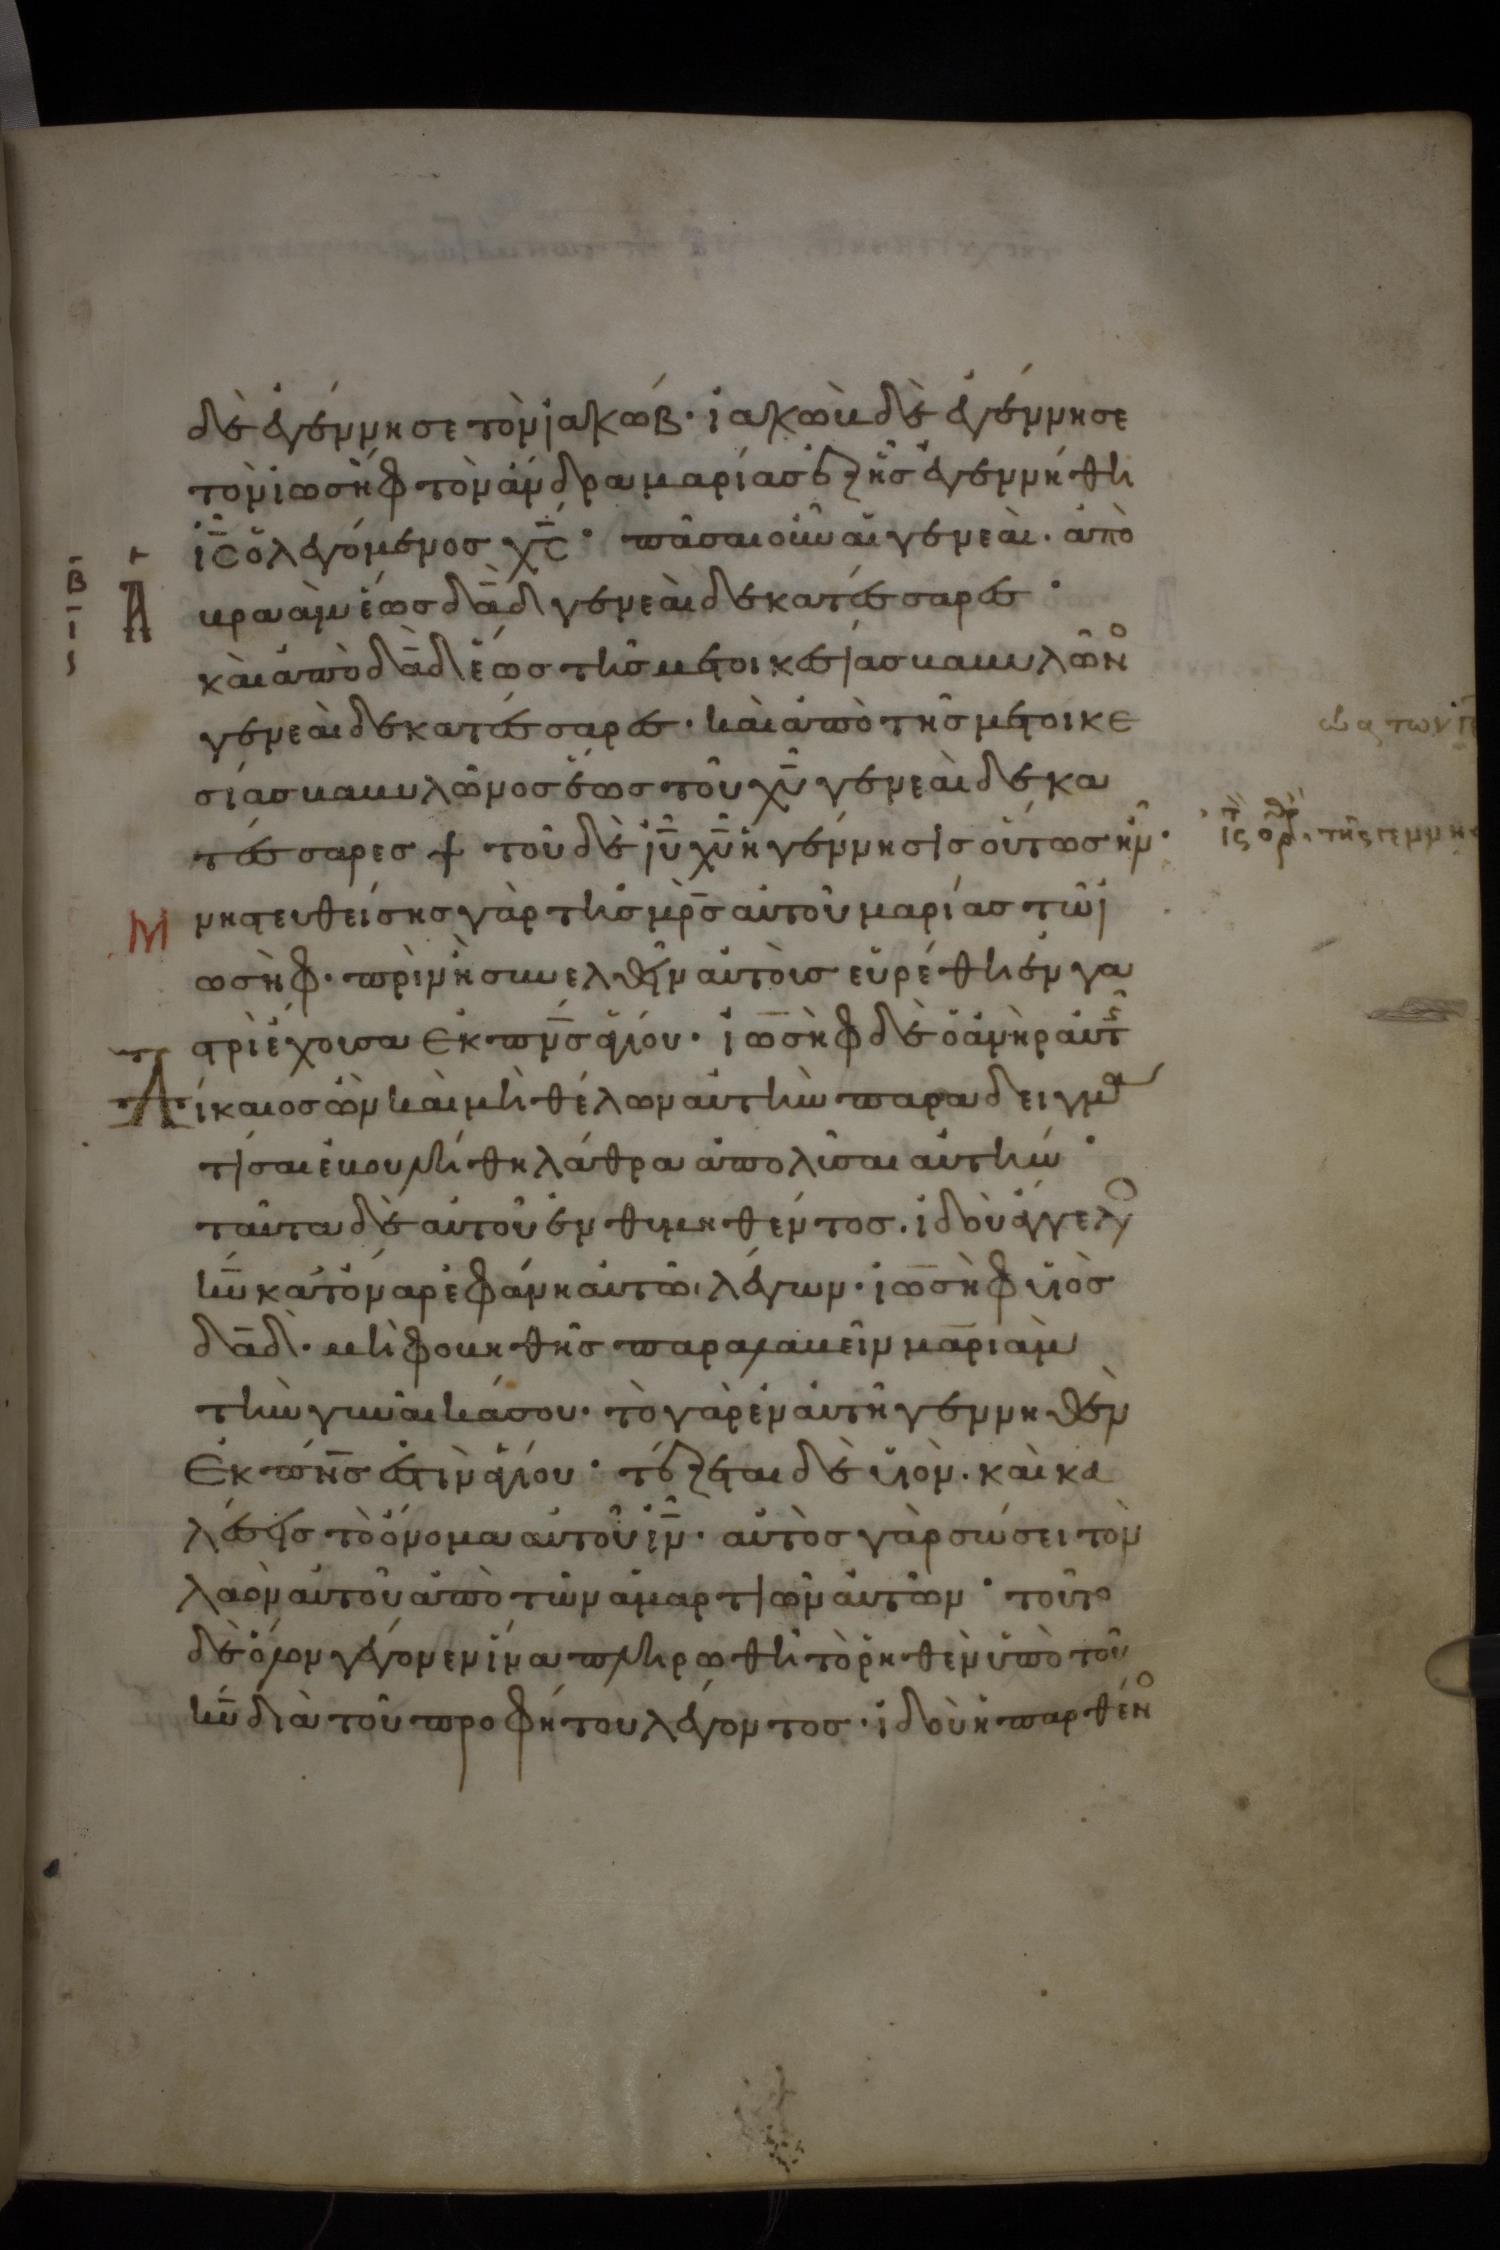 δὲ ἐγέννησε τὸν ἰακώβ· ἰακὼβ δὲ ἐγέννησε
τὸν ἰωσὴφ τὸν ἄνδρα μαρίας ἐξ ἧς ἐγεννήθη
ι̅ς̅ ὁ λεγόμενος χ̅ς̅· πᾶσαι οὖν αἱ γενεαὶ· ἀπὸ
ἀβραὰμ ἕως δ̅α̅δ̅ γενεαὶ δεκατέσσαρες·
καὶ ἀπὸ δ̅α̅δ̅ ἕως τῆς μετοικεσίας βαβυλῶνο
γενεαὶ δεκατέσσαρες· καὶ ἀπὸ τῆς μετοικε
σίας βαβυλῶνος ἕως τοῦ χ̅υ̅ γενεαὶ δεκα
τέσσαρες + τοῦ δὲ ι̅υ̅ χ̅υ̅ ἡ γέννησις οὕτως ἦν·
Μνηστευθείσης γὰρ τῆς μ̅ρ̅ς̅ αὐτοῦ μαρίας τῶ ἰ
ωσὴφ· πρὶν ἢ συνελθεῖν αὐτοὺς εὑρέθη ἐν γα
στρὶ ἔχουσα ἐκ π̅ν̅ς̅ ἁγίου· ἰωσὴφ δὲ ὁ ἀνὴρ αὐτ
Δίκαιος ὢν καὶ μὴ θέλων αὐτὴν παραδειγμα
τίσαι ἐβουλήθη λάθρα ἀπολῦσαι αὐτήν·
ταῦτα δὲ αὐτοῦ ἐνθυμηθέντος· ἰδοὺ ἄγγελο
κ̅υ̅ κατ ὄναρ ἐφάνη αὐτῶ λέγων· ἰωσὴφ υἱὸς
δ̅α̅δ̅· μὴ φοβηθῆς παραλαβεῖν μαριὰμ
τὴν γυναῖκά σου· τὸ γὰρ ἐν αὐτῆ γεννηθὲν
ἐκ π̅ν̅ς̅ ἐστὶν ἁγίου· τέξεται δὲ υἱὸν· καὶ κα
λέσεις τὸ ὄνομα αὐτοῦ ι̅ν̅· αὐτὸς γὰρ σώσει τὸν
λαὸν αὐτοῦ ἀπὸ τῶν ἁμαρτιῶν αὐτῶν· τοῦτο
δὲ ὅλον γέγονεν ἵνα πληρωθῆ τὸ ῥηθὲν ὑπὸ τοῦ
κ̅υ̅ διὰ τοῦ προφήτου λέγοντος· ἰδοὺ ἡ παρθένο